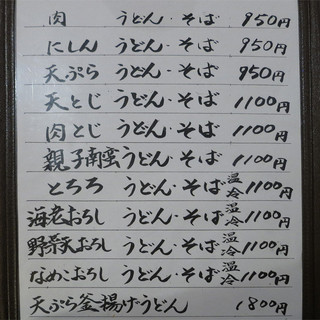 肉 うどん・そば 950円
にしん うどん・そば 950円
天ぷら うどん・そば 950円
天とじ うどん・そば 1100円
肉とじ うどん・そば 1100円
親子南蛮うどん・そば 1100円
とろろ うどん・そば 温冷 1100円
海老おろし うどん・そば 温冷 1100円
野菜天おろし うどん・そば 温冷 1100円
なめこおろし うどん・そば 温冷 1100円
天ぷら釜揚げうどん 1800円